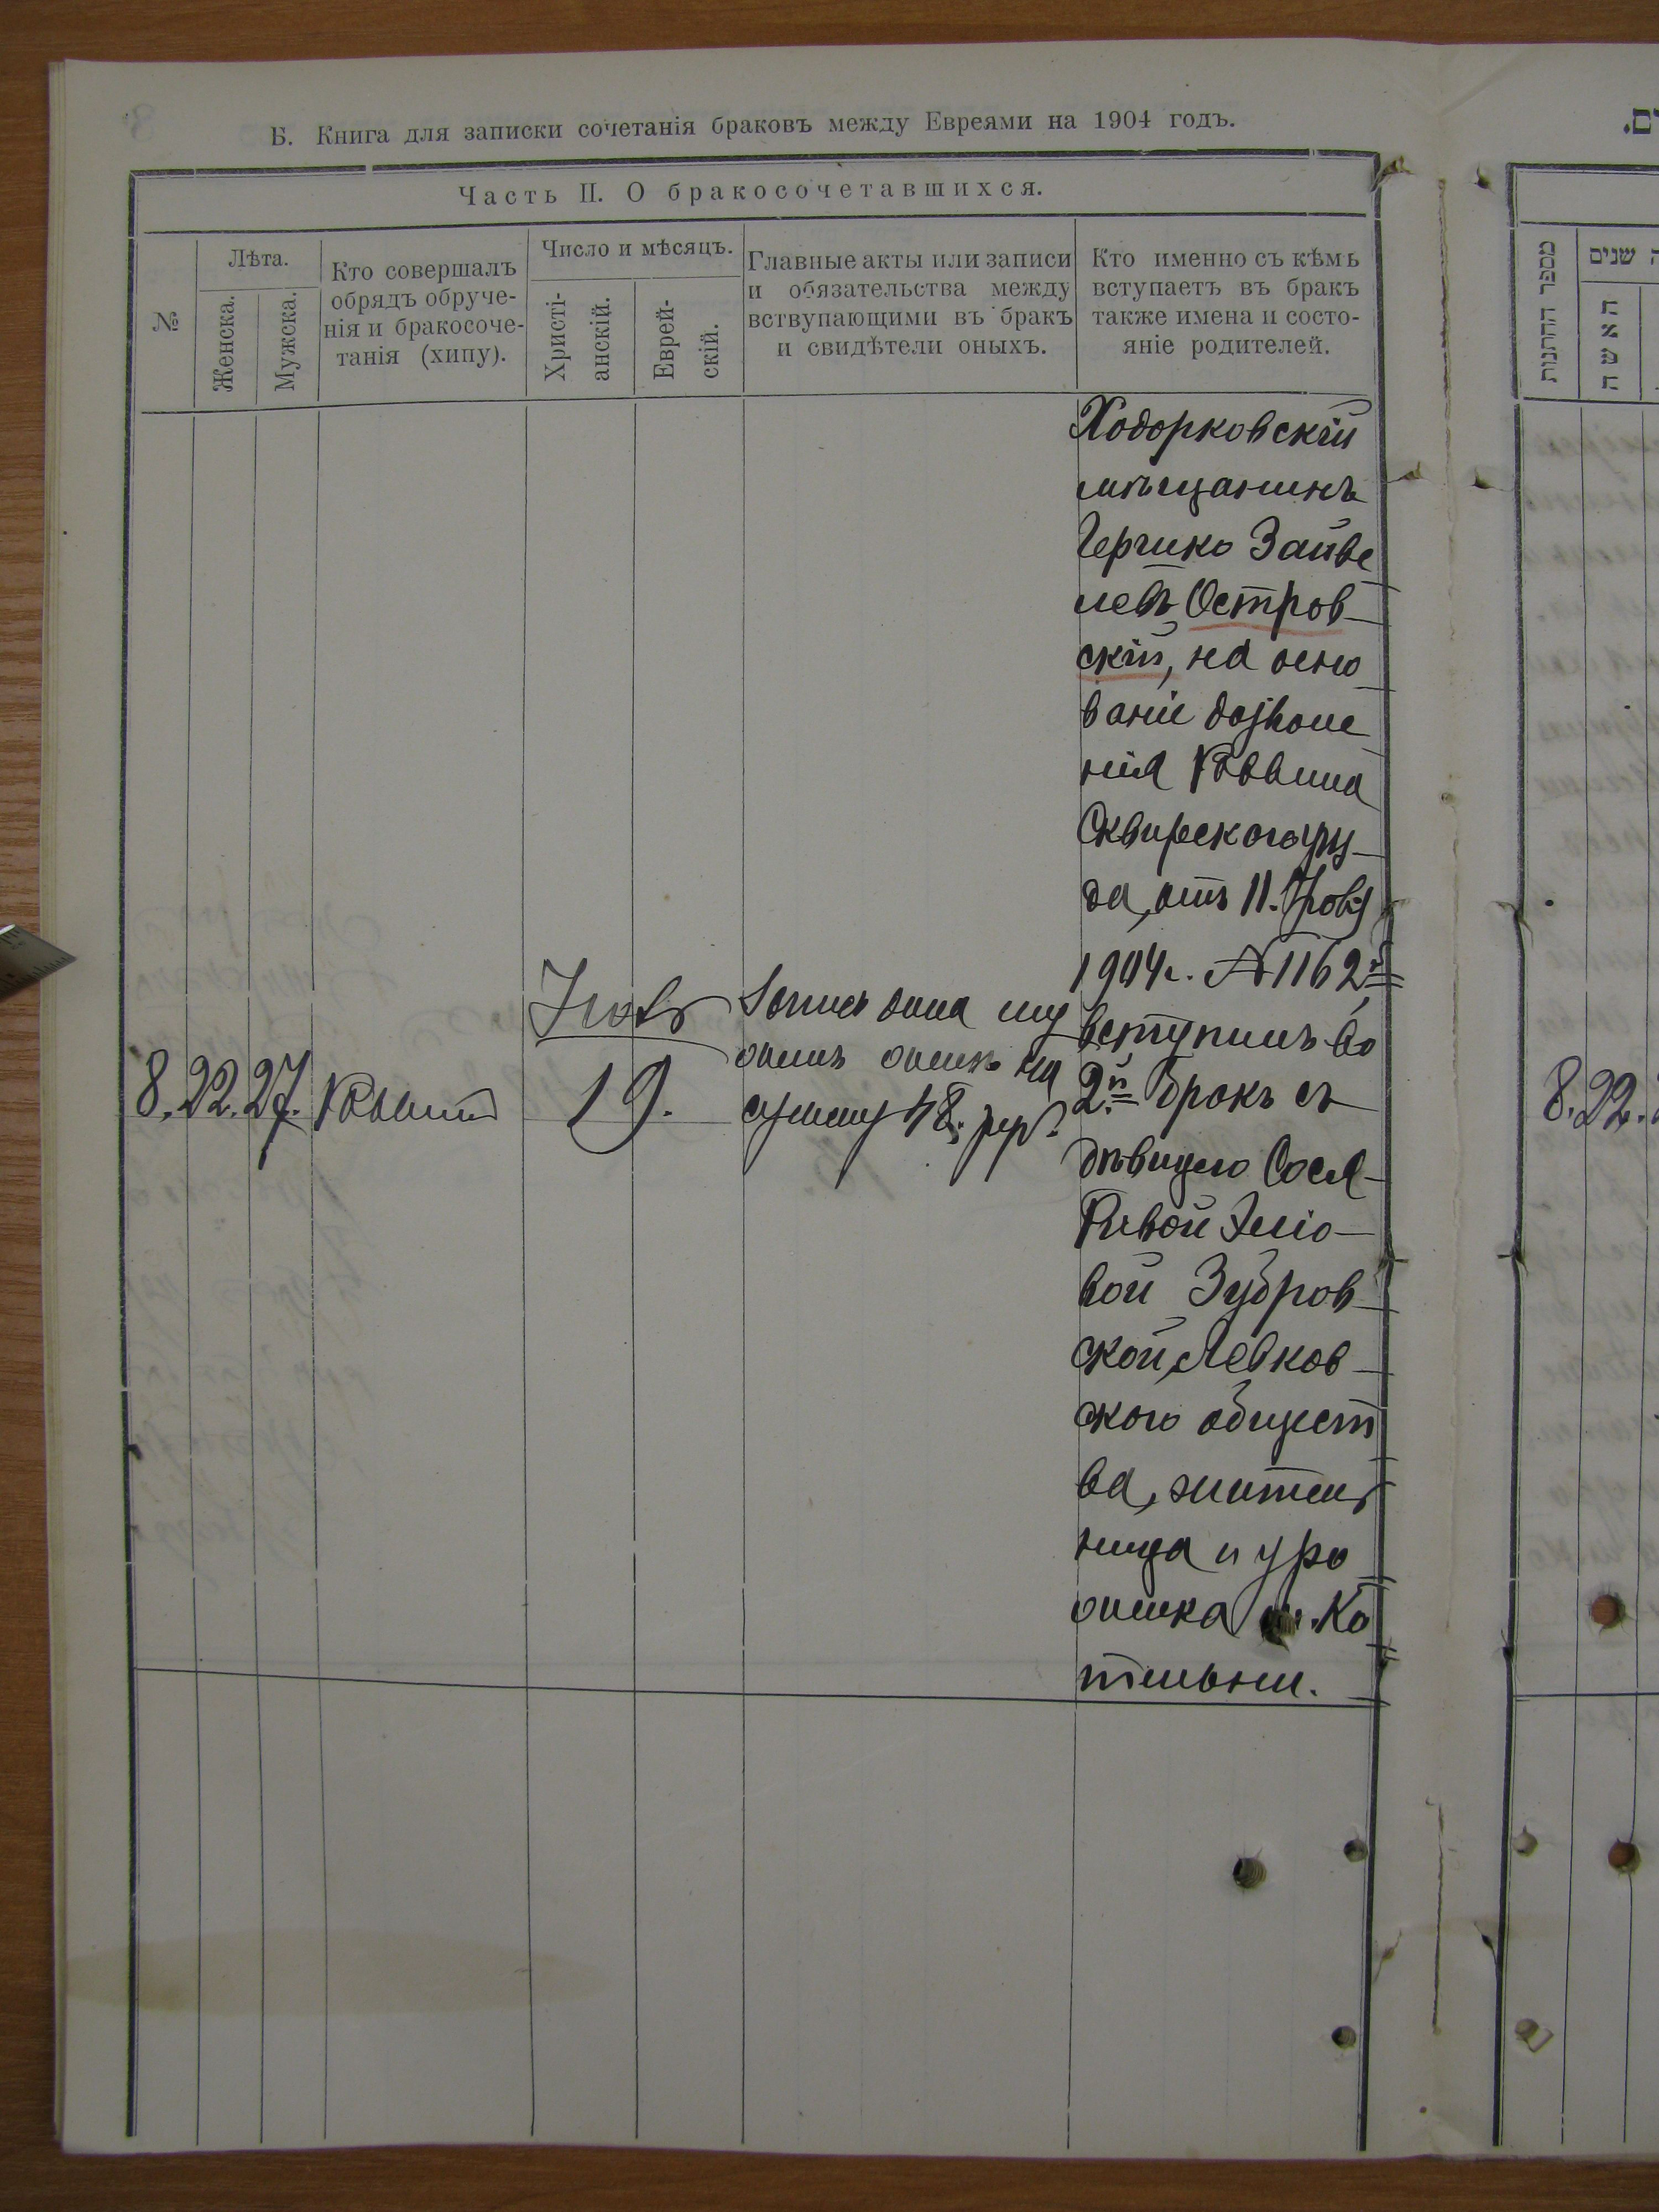 Б. Книга для записки сочетанія браковъ между Евреями на 1904 годъ.
Часть II. О бракосочетавшихся.
№
Лѣта.
Женска.
Мужска.
Кто совершалъ
обрядъ обруче-
нія и бракосоче-
танія (хипу).
Число и мѣсяцъ.
Христі-
анскій.
Еврей-
скій.
Главные акты или записи
и обязательства между
вствупающими въ бракъ
и свидѣтели оныхъ.
Кто именно съ кѣмъ
вступаетъ въ бракъ
также имена и состо-
яніе родителей.
8. 22. 27. Раввинъ
19.
сумму 48. руб.
Ходорковскій
мѣщанинъ
Гершко Зайве
левъ Остров-
скій, на осно
ваніи дозволе
нія Раввина
Сквирскаго уѣз-
да, отъ 11
1904г. № 1162
вступилъ во
2й бракъ съ
дѣвицею Сося-
Ривой Эліо-
вой Зубров-
ской, Левков-
скаго общест
ва, житель
ница и уро
Ко
тельни.
ם.
מספר החתנות
שנים
האשה
8. 22.